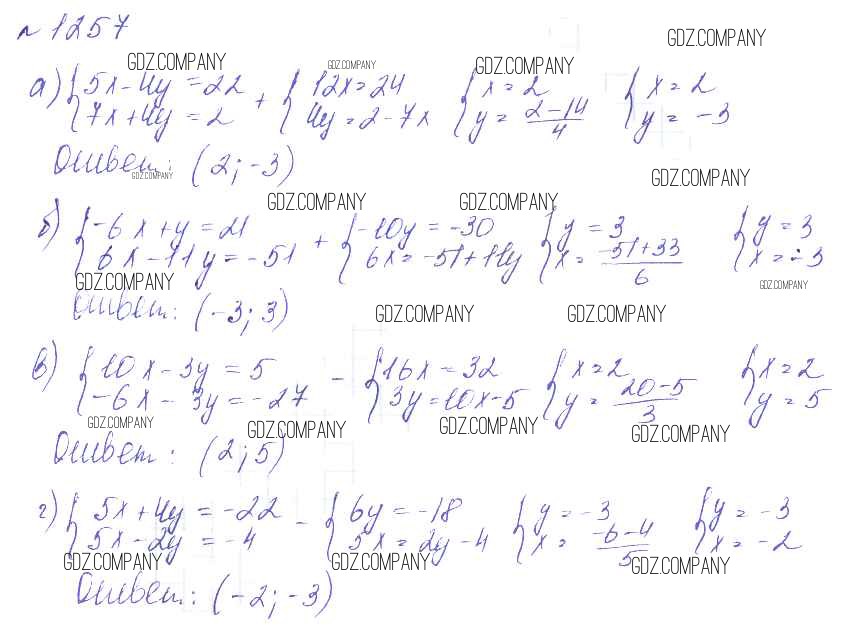 № 1257
GDZ.COMPANY
GDZ.COMPANY GDZ.COMPANY GDZ.COMPANY
а) { 5x-4y = 22 + { 12x = 24 { x = 2 { x = 2
7x+4y = 2 4y = 2-7x y = (2-14)/4 y = -3
Ответ: (2; -3)
GDZ.COMPANY GDZ.COMPANY
GDZ.COMPANY GDZ.COMPANY
б) { -6x+y = 21 + { -10y = -30 { y = 3 { y = 3
6x-11y = -51 6x = -51+11y x = (-51+33)/6 x = -3
GDZ.COMPANY GDZ.COMPANY
Ответ: (-3; 3)
GDZ.COMPANY GDZ.COMPANY
в) { 10x-3y = 5 - { 16x = 32 { x = 2 { x = 2
-6x-3y = -27 3y = 10x-5 y = (20-5)/3 y = 5
GDZ.COMPANY GDZ.COMPANY GDZ.COMPANY GDZ.COMPANY
Ответ: (2; 5)
г) { 5x+4y = -22 - { 6y = -18 { y = -3 { y = -3
5x-2y = -4 5x = 2y-4 x = (-6-4)/5 x = -2
GDZ.COMPANY GDZ.COMPANY GDZ.COMPANY
Ответ: (-2; -3)